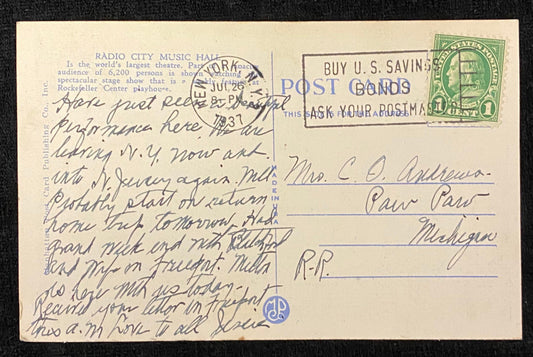 RADIO CITY MUSIC HALL
Is the world's largest theatre. Part of
audience of 6,200 persons is shown watching
spectacular stage show that is a weekly feature at
Rockefeller Center playhouse.
Have just seen a
performance here. We are
leaving N.Y. now and
into N. Jersey again. Will
Probably start on return
home trip tomorrow. Had
grand week end with
and wife on Freeport.
is here with us today.
Received your letter in Freeport
this a.m. Love to all
NEW YORK, N.Y.
JUL 26
PM
1937
BUY U.S. SAVINGS
BONDS
ASK YOUR POSTMASTER
UNITED STATES POSTAGE
1 CENT 1
POST CARD
THIS SPACE FOR ADDRESS
Mrs. C. O. Andrews
Paw Paw
Michigan
R.R.
MADE IN U.S.A.
Post Card Publishing Co., Inc.